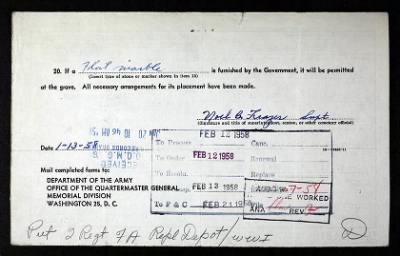 20. If a Flat marble is furnished by the Government, it will be permitted
(Insert type of stone or marker shown in item 13)
at the grave. All necessary arrangements for its placement have been made.
Noel B. Frazer Supt
(Signature and title of superintendent, sexton, or other cemetery official)
Date 1-13-58
RECEIVED
O.Q.M.G.
Mail completed forms to:
DEPARTMENT OF THE ARMY
OFFICE OF THE QUARTERMASTER GENERAL
MEMORIAL DIVISION
WASHINGTON 25, D. C.
To Process FEB 12 1958 Canc.
To Order FEB 12 1958 Renewal
FEB 13 1958 Replace
To P & C FEB 21 1958
WORKED
ANA REV
Pvt 2 Regt FA Repl Depot / WWI